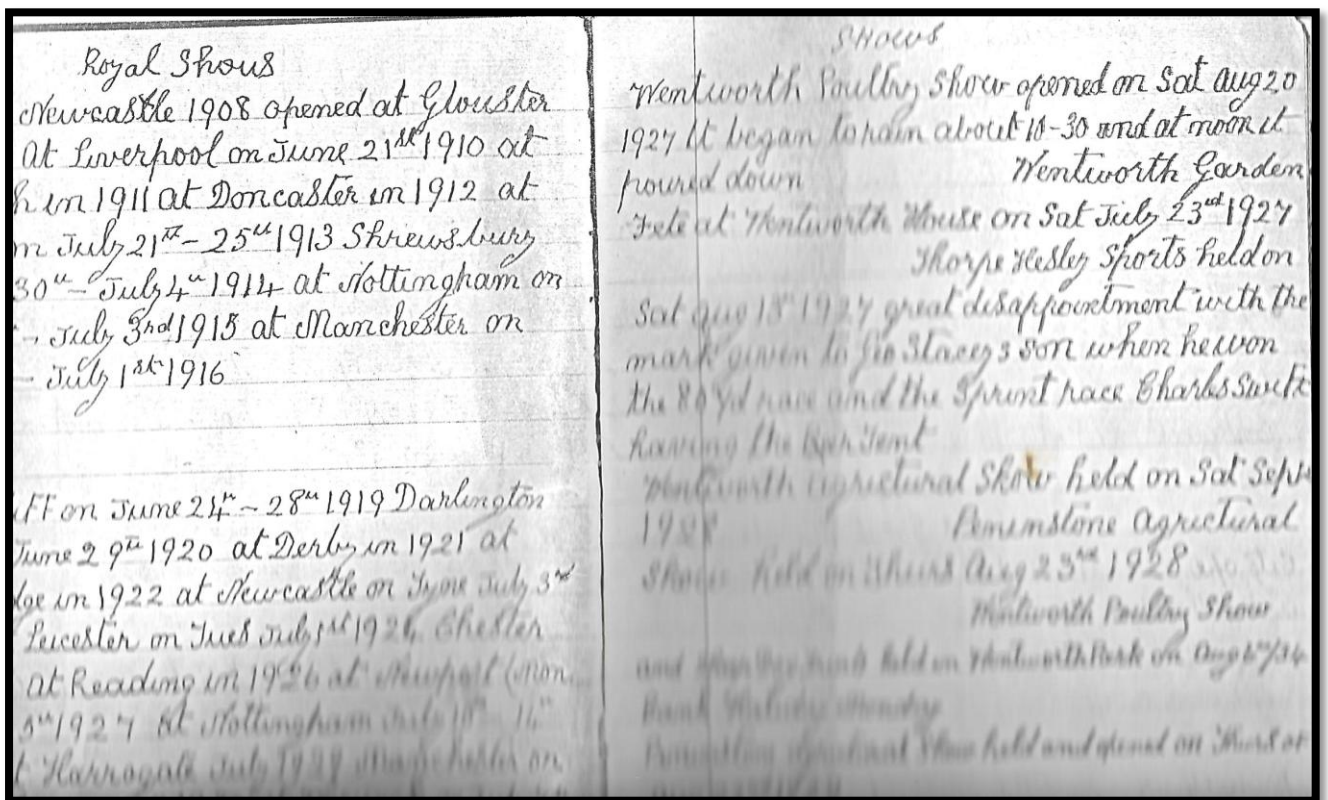 Royal Shous
Newcastle 1908 opened at Glouster
at Liverpool on June 21st 1910 at
h in 1911 at Doncaster in 1912 at
m July 21st - 25th 1913 Shrewsbury
30th - July 4th 1914 at Nottingham on
- July 3rd 1915 at Manchester on
- July 1st 1916
ff on June 24th - 28th 1919 Darlington
June 29th 1920 at Derby in 1921 at
ge in 1922 at Newcastle on Tyne July 3rd
Leicester on Tues July 1st 1924 Chester
at Reading in 1926 at Newport (Mon
5th 1927 at Nottingham July 10th
t Harrogate July Manchester on
Shows
Wentworth Poultry Show opened on Sat Aug 20
1927 it began to rain about 10-30 and at noon it
poured down Wentworth Garden
Fete at Wentworth House on Sat July 23rd 1927
Thorpe Hesley Sports held on
Sat Aug 13th 1927 great disappointment with the
mark given to Stacey s son when he won
the 80 yd race and the Sprint race Charles Swift
having the Beer Tent
Wentworth agrictural Show held on Sat Sept
1928 Peninstone agrictural
Show held on Thurs Aug 23rd 1928
Wentworth Poultry Show
and held on Wentworth Park on Aug
Bank Monday
Show held and opened on Thurs